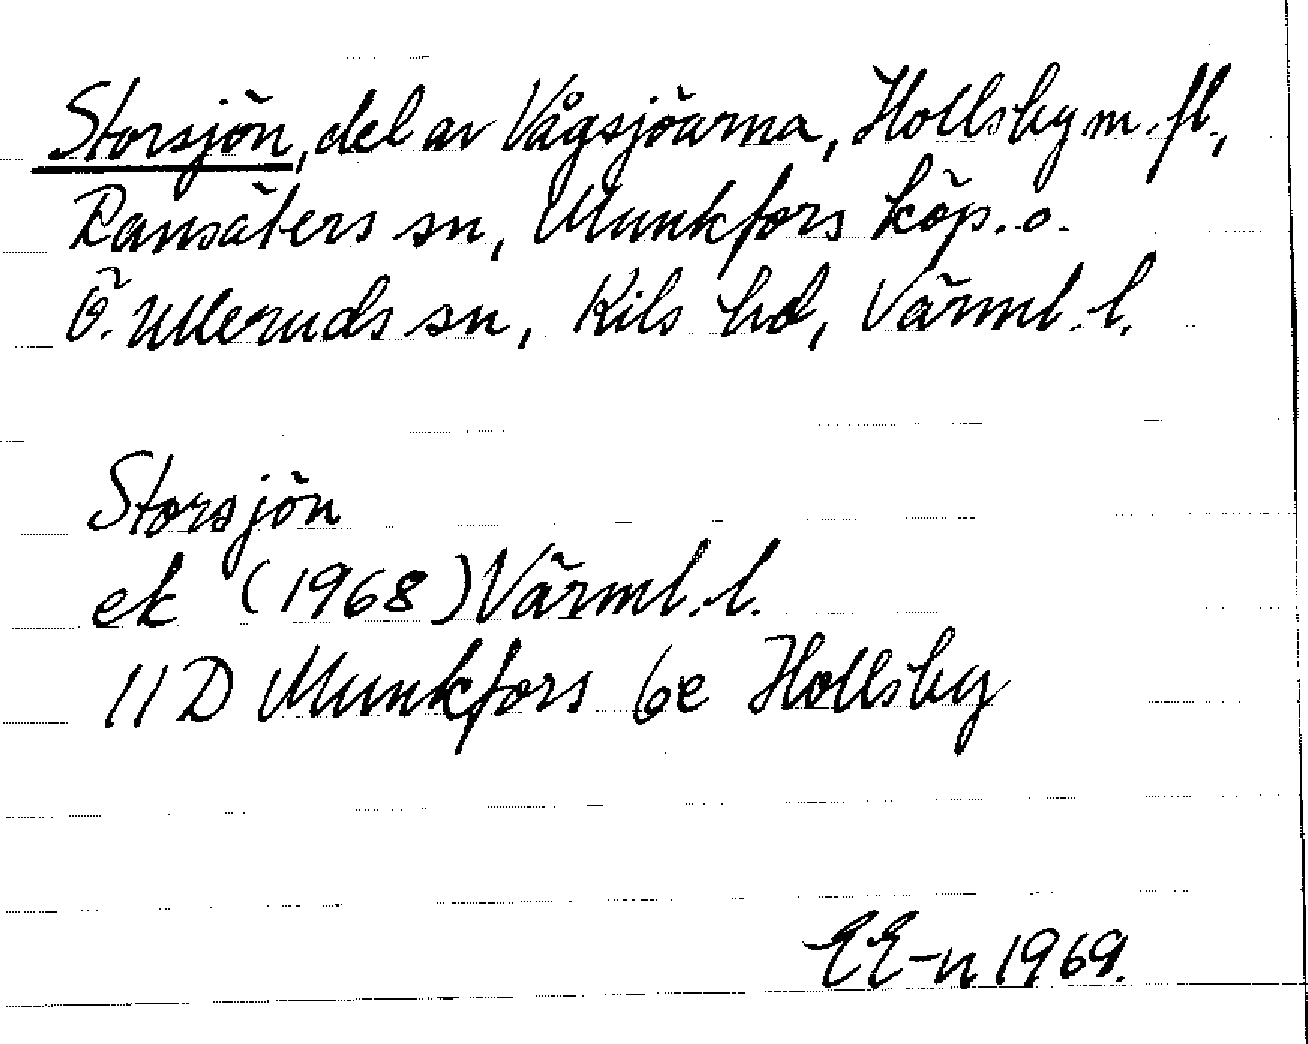 Storsjön, del av Vågsjöarna, Hollsby m.fl.,
Ransäters sn, Munkfors köp. o.
Ö. Ulleruds sn, Kils hd, Värml. l.
Storsjön
ek (1968) Värml. l.
11D Munkfors 6e Hollsby
EE-n 1969.